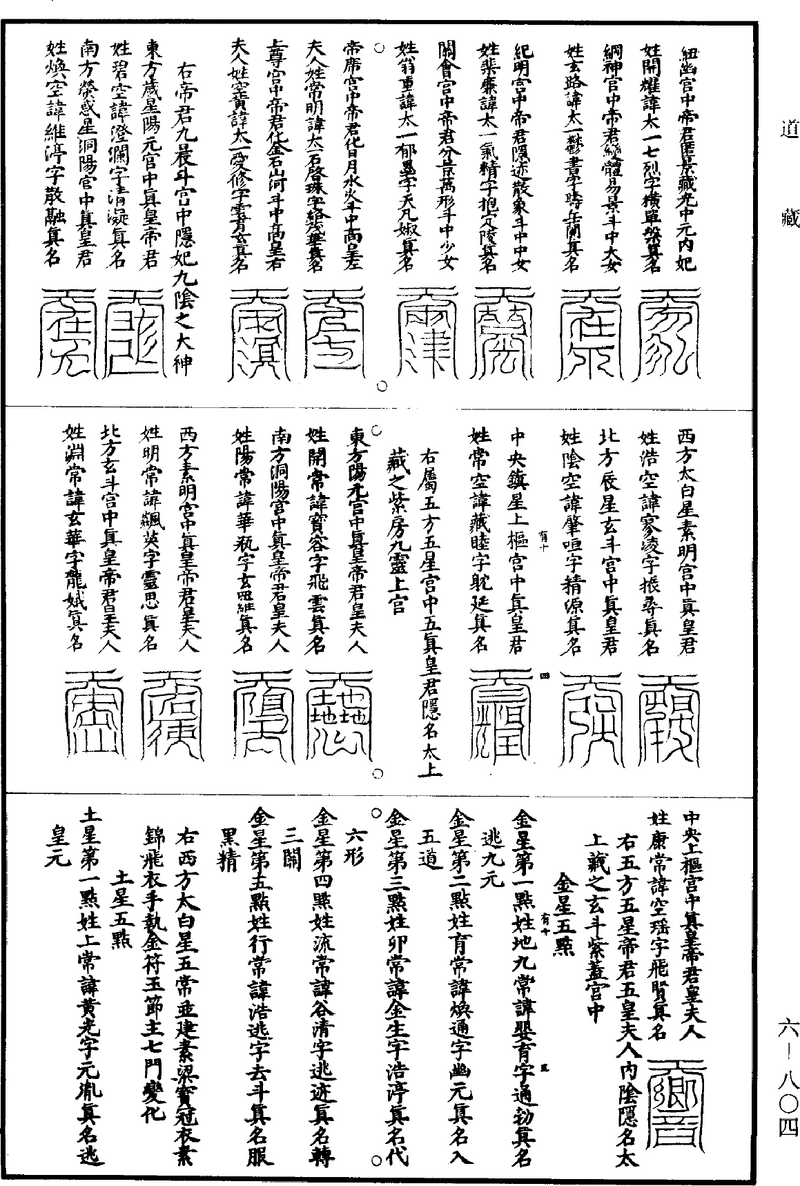 道藏
紐幽宮中帝君匿景藏光中元内妃
姓開燿諱太一七烈字橫單槃真名
綱神宮中帝君變體易景斗中大女
姓玄路諱太一鬱書字時岳蘭真名
紀明宮中帝君隱迹散象斗中中女
姓柴廉諱太一氣精字抱定陵真名
關會宮中帝君分景萬形斗中少女
姓翁重諱太一郁墨字天凡婌真名
○
帝席宮中帝君化日月水火斗中高皇左
夫人姓常明諱太一石啓珠字 華真名
上尊宮中帝君化金石山河斗中高皇右
夫人姓空賁諱太一受修字雲育玄真名
右帝君九晨斗宮中隱妃九陰之大神
東方歲星陽元宮中真皇帝君
姓碧空諱澄瀾字清凝真名
南方熒惑星洞陽宮中真皇君
姓煥空諱維渟字散融真名
○
西方太白星素明宮中真皇君
姓浩空諱寥凌字振尋真名
北方辰星玄斗宮中真皇君
姓陰空諱肇咺字精源真名
中央鎮星上樞宮中真皇君
有十
四
姓常空諱藏睦字躭延真名
右屬五方五星宮中五真皇君隱名太上
藏之紫房九靈上宮
○
東方陽元宮中真皇帝君皇夫人
姓開常諱寶容字飛雲真名
南方洞陽宮中真皇帝君皇夫人
姓陽常諱華瓶字玄羅真名
西方素明宮中真皇帝君皇夫人
姓明常諱飆英字靈恩真名
北方玄斗宮中真皇帝君皇夫人
姓淵常諱玄華字龍娥真名
○
中央上樞宮中真皇帝君皇夫人
姓康常諱空瑶字飛賢真名
右五方五星帝君五皇夫人内陰隱名太
上藏之玄斗紫蓋宮中
金星五點
有十
五
金星第一點姓地九常諱嬰育字通勃真名
逃九元
金星第二點姓育常諱煥通字幽元真名入
五道
金星第三點姓卯常諱金生字浩渟真名代
○
六形
金星第四點姓流常諱谷清字逃迹真名轉
三關
金星第五點姓行常諱浩逃字去斗真名服
黑精
右西方太白星五常並建素梁寶冠衣素
錦飛衣手執金符玉節主七門變化
土星五點
土星第一點姓上常諱黃光字元胤真名逃
皇元
○
六—八〇四